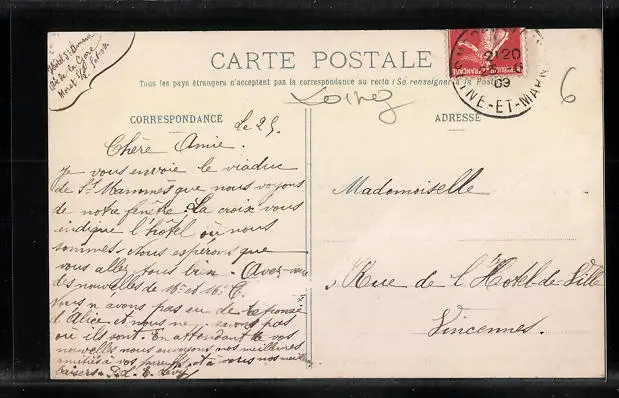 CARTE POSTALE
Tous les pays étrangers n'acceptent pas la correspondance au recto (Se renseigner à la Poste
CORRESPONDANCE
ADRESSE
FRANÇAISE
20
09
NE-ET-MARN
6
Hôtel
de la Gare
Moret
Le 25
Chère Amie.
Je vous envoie le viaduc
de St Mammès que nous voyons
de notre fenêtre. La croix vous
indique l'hôtel où nous
sommes. Nous espérons que
vous allez tous bien. Avez-vous
des nouvelles de Mr et Mme C.
Nous n'avons pas eu de réponse
d'Alice et nous ne savons pas
où ils sont. En attendant de vos
nouvelles nous envoyons nos meilleures
amitiés à vos parents et à vous nos meilleurs
baisers.
Mademoiselle
Rue de l'Hotel-de-Ville
Vincennes.